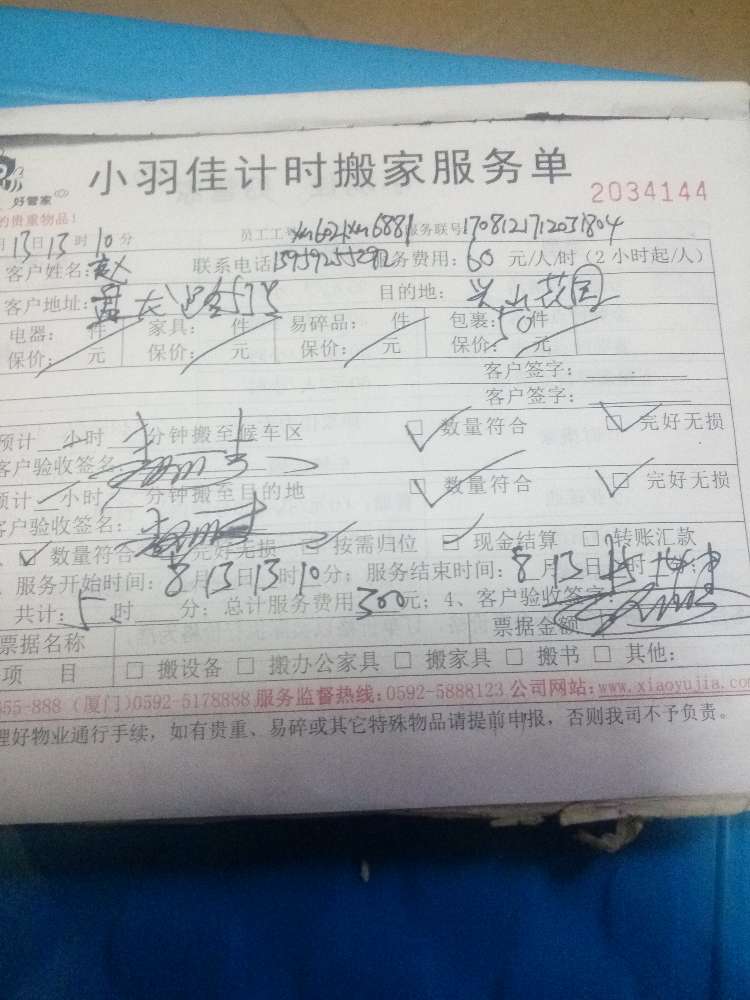 小羽佳计时搬家服务单
好管家
2034144
的贵重物品!
月13日13时10分 员工工号 xm6021xm6881 服务联号 1708121712031804
客户姓名:赵 联系电话 服务费用:60元/人/时(2小时起/人)
客户地址: 目的地:兴山花园
电器: 件 家具: 件 易碎品: 件 包裹:50件
保价: 元 保价: 元 保价: 元 保价: 元
客户签字:
客户签字:
预计 小时 分钟搬至候车区 □ 数量符合 □ 完好无损
客户验收签名:
预计 小时 分钟搬至目的地 □ 数量符合 □ 完好无损
客户验收签名:
□ 数量符合 完好无损 □ 按需归位 □ 现金结算 □ 转账汇款
服务开始时间:8月13日13时10分;服务结束时间:8月13日 时
共计:5时 分;总计服务费用300元;4、客户验收签字
票据名称 票据金额
项 目 □ 搬设备 □ 搬办公家具 □ 搬家具 □ 搬书 □ 其他:
855-888 (厦门)0592-5178888 服务监督热线:0592-5888123 公司网站:www.xiaoyujia.com
理好物业通行手续,如有贵重、易碎或其它特殊物品请提前申报,否则我司不予负责。